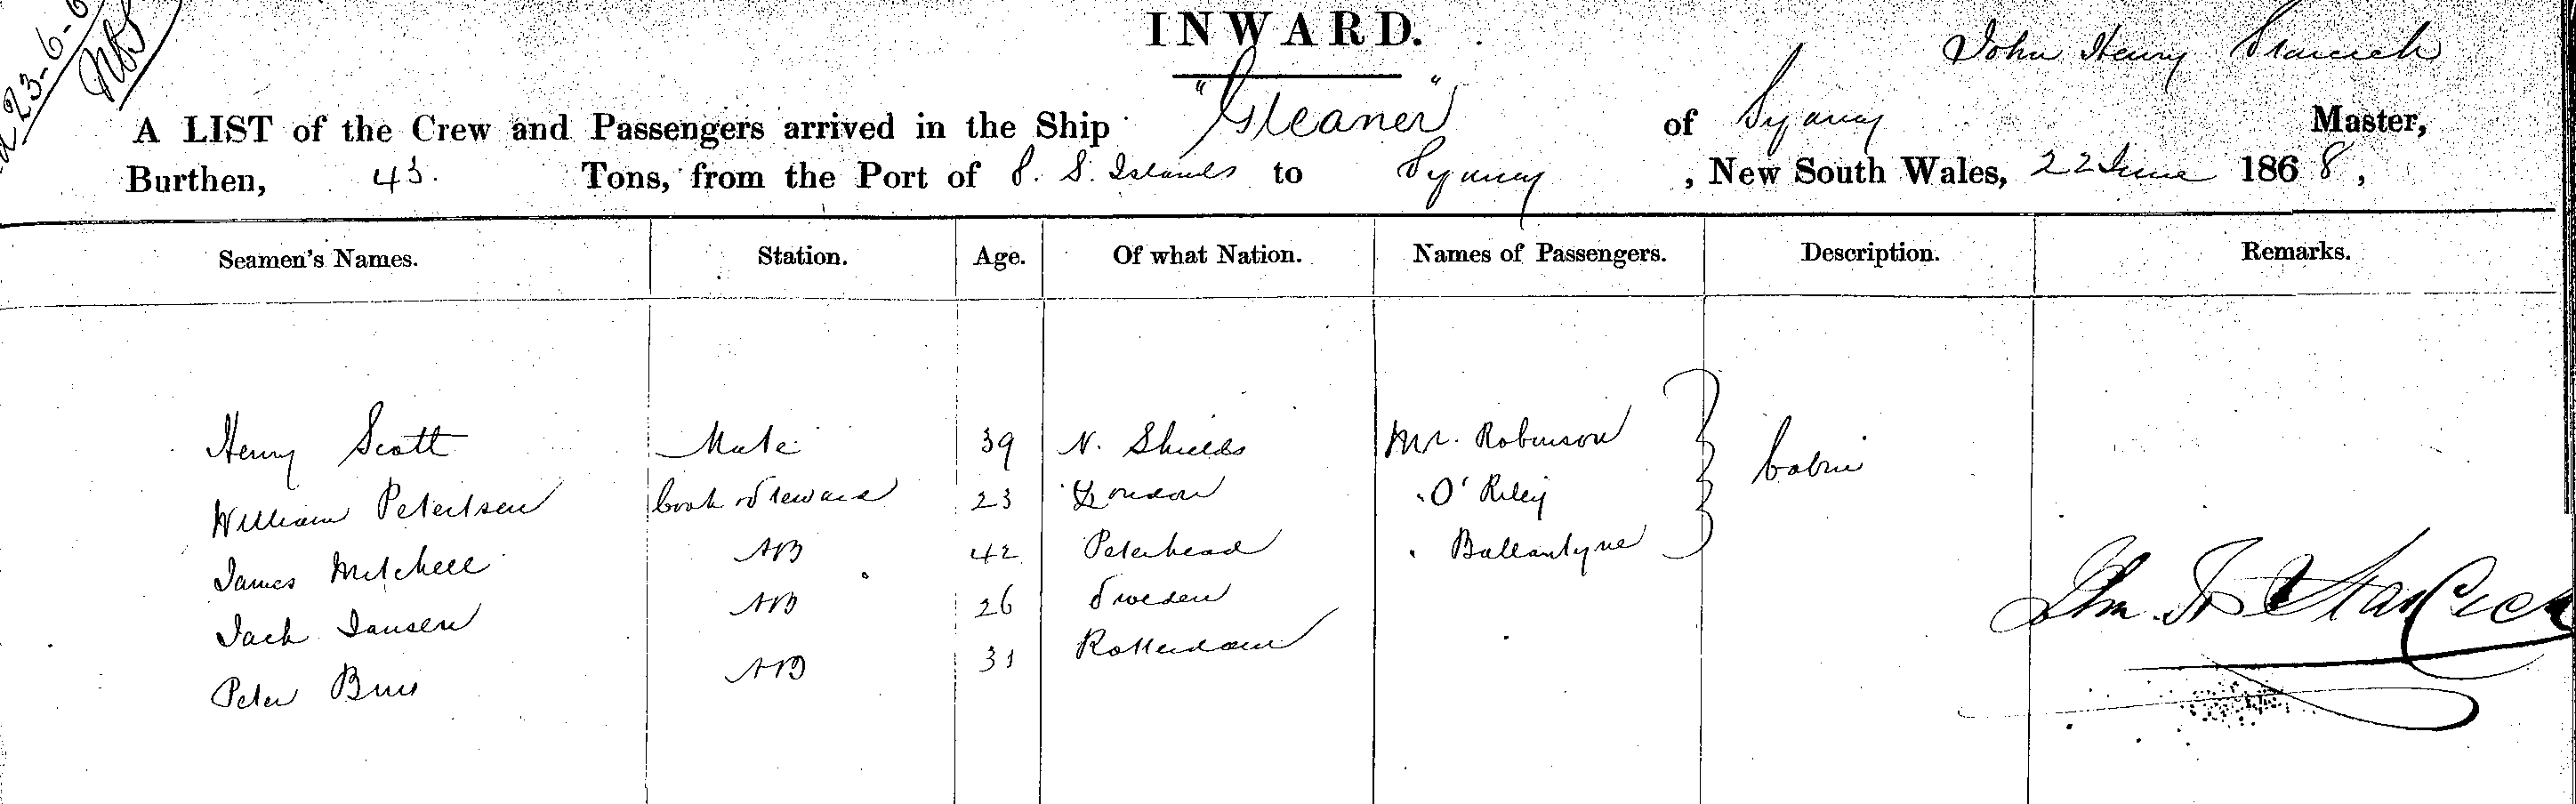 23-6-6
INWARD.
John Henry
A LIST of the Crew and Passengers arrived in the Ship "Gleaner" of Sydney Master,
Burthen, 43. Tons, from the Port of S. S. Islands to Sydney, New South Wales, 22 June 1868,
Seamen's Names. Station. Age. Of what Nation. Names of Passengers. Description. Remarks.
Henry Scott Mate 39 N. Shields Mr. Robinson
William Petertsen Cook & Steward 23 London " O'Riley Cabin
James Mitchell AB 42 Peterhead " Ballantyne
Jack Jansen AB 26 Sweden
Peter AB 31 Rotterdam
Jhn. H